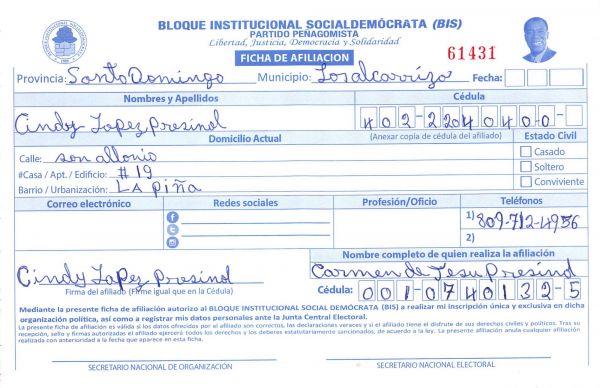 BLOQUE INSTITUCIONAL SOCIALDEMÓCRATA (BIS)
PARTIDO PEÑAGOMISTA
Libertad, Justicia, Democracia y Solidaridad
FICHA DE AFILIACION
61431
Provincia: Santo Domingo Municipio: Losalcarrizo Fecha:
Nombres y Apellidos Cédula
Cindy Lopez Presinol 402-2204040-0-
(Anexar copia de cédula del afiliado)
Domicilio Actual Estado Civil
Calle: son allonio Casado
#Casa / Apt. / Edificio: # 19 Soltero
Barrio / Urbanización: LA piña Conviviente
Correo electrónico Redes sociales Profesión/Oficio Teléfonos
1) 809-712-4956
2)
Nombre completo de quien realiza la afiliación
Cindy Lopez Presinol Carmen de Jesu Presind
Firma del afiliado (Firme igual que en la Cédula) Cédula: 001-0740132-5
Mediante la presente ficha de afiliación autorizo al BLOQUE INSTITUCIONAL SOCIAL DEMÓCRATA (BIS) a realizar mi inscripción única y exclusiva en dicha
organización política, así como a registrar mis datos personales ante la Junta Central Electoral.
La presente ficha de afiliación es válida si los datos ofrecidos por el afiliado son correctos, las declaraciones veraces y si el afiliado tiene el disfrute de sus derechos civiles y políticos. Tras su
recepción, sello y firmas autorizados el afiliado ejercerá todos los derechos y le deberes estatutariamente sancionados, de acuerdo a la ley. La presente afiliación anula cualquier afiliación
realizada con anterioridad a la fecha que aparece en esta ficha.
SECRETARIO NACIONAL DE ORGANIZACIÓN SECRETARIO NACIONAL ELECTORAL